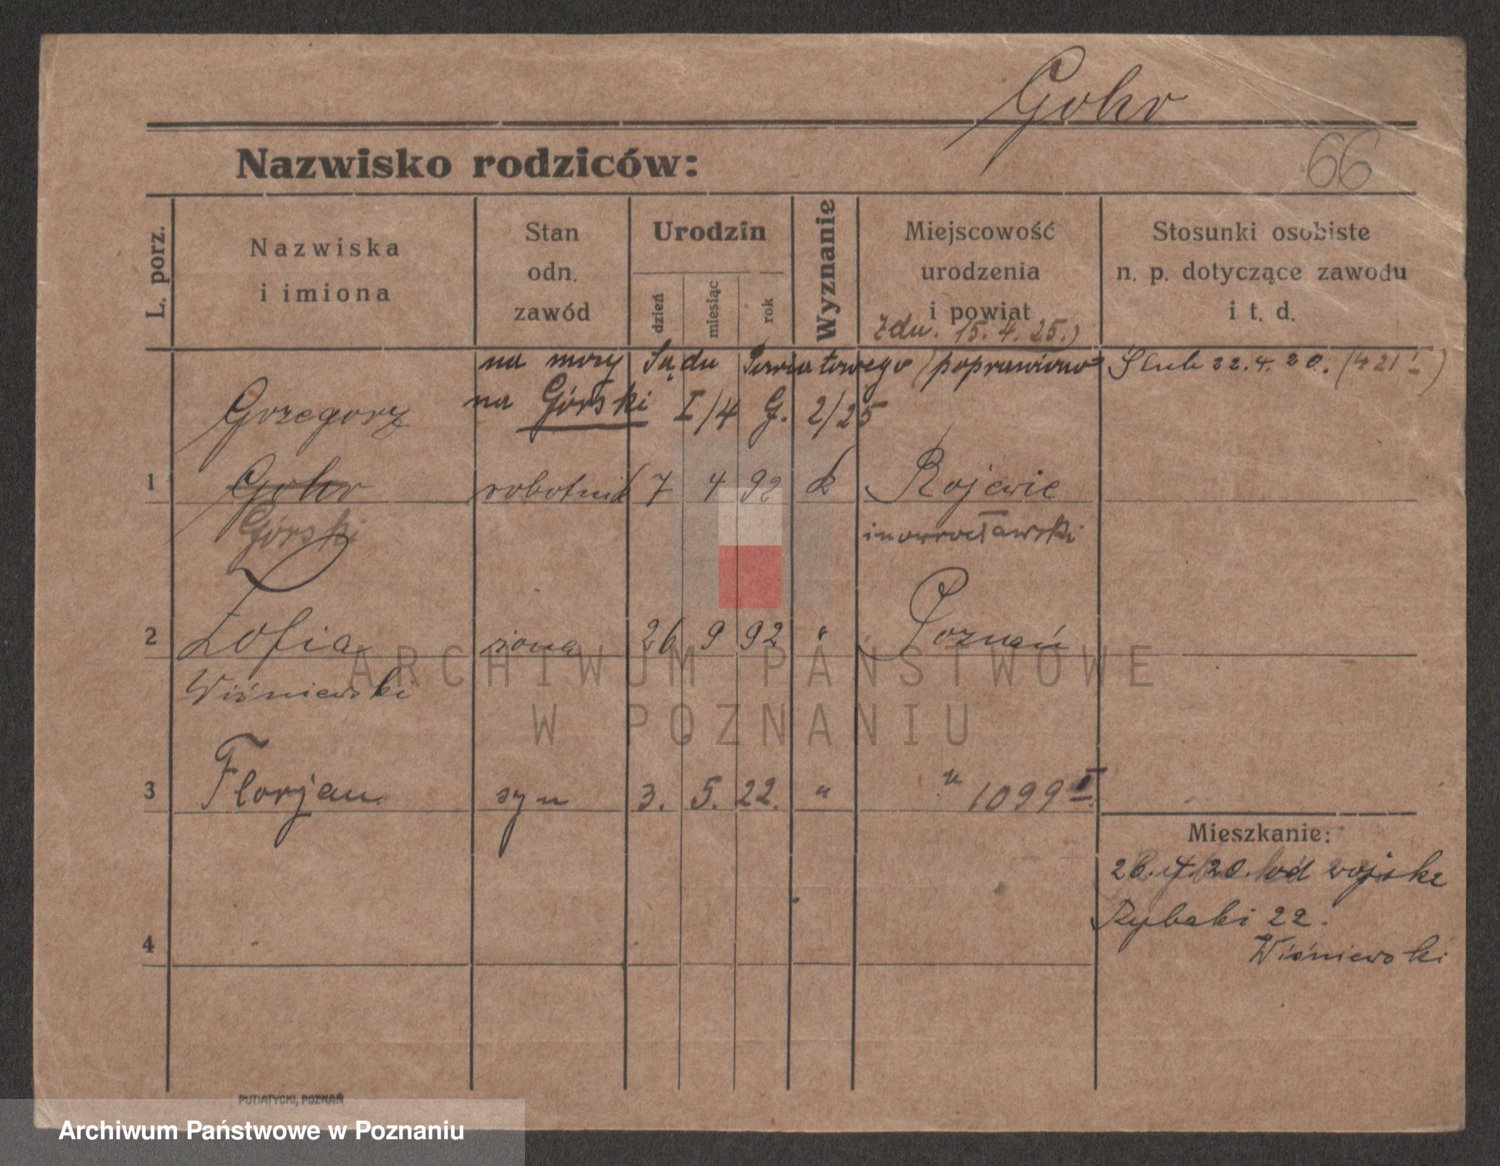 Gohr
66
Nazwisko rodziców:
L. porz.
Nazwiska
i imiona
Stan
odn.
zawód
Urodzin
dzień
miesiąc
rok
Wyznanie
Miejscowość
urodzenia
i powiat
Stosunki osobiste
n. p. dotyczące zawodu
i t. d.
zdn. 15. 4. 25.)
na mocy Sądu Powiatowego (poprawiono
na Górski I/4 G. 2/25
Ślub 22. 4. 20. (421 I)
Grzegorz
1 Gohr robotnik 7 4 92 k Rojewie
Górski inowrocławski
2 Zofia żona 26 9 92 " Poznań
Wiśniewski
3 Florjan syn 3. 5. 22. " " 1099 I
Mieszkanie:
26. 4. 20. od wojska
Rybaki 22.
Wiśniewski
4
PUTIATYCKI, POZNAŃ
ARCHIWUM PAŃSTWOWE
W POZNANIU
Archiwum Państwowe w Poznaniu